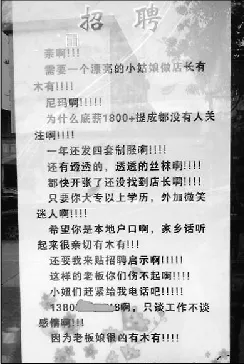 招聘
亲啊!!!
需要一个漂亮的小姑娘做店长有
木有!!!!
尼玛啊!!!!!
为什么底薪1800+提成都没有人关
注啊!!!!
一年还发四套制服啊!!!!
还有透透的，透透的丝袜啊!!!!
都快开张了还没找到店长啊!!!!
只要你大专以上学历，外加微笑
迷人啊!!!!
希望你是本地户口啊，家乡话听
起来很亲切有木有!!!
还要我来贴招聘启示啊!!!!
这样的老板你们伤不起啊!!!!
小妞们赶紧给我电话吧!!!!
1380 8啊，只谈工作不谈
感情啊!!!
因为老板娘很凶有木有!!!!